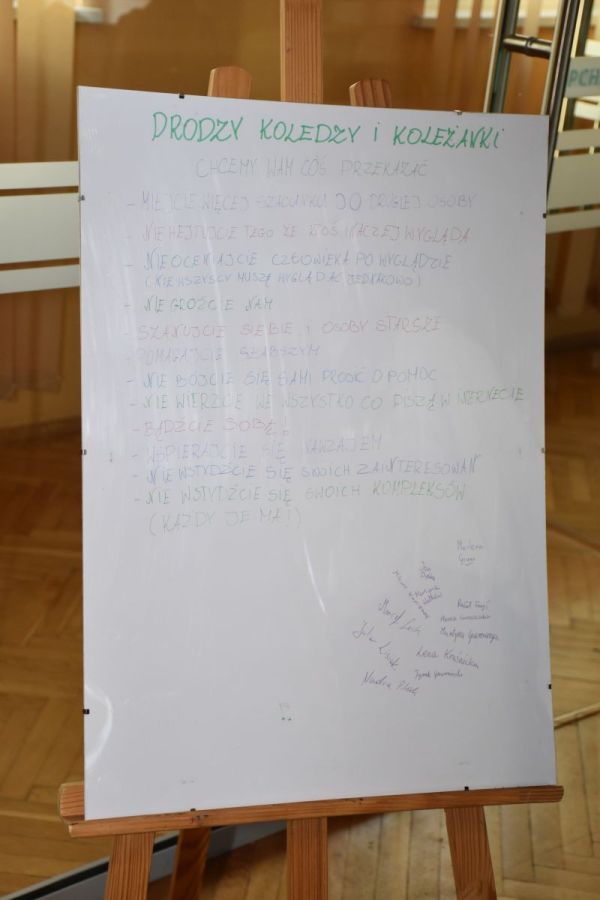 PCH
DRODZY KOLEDZY i KOLEŻANKI
CHCEMY WAM COŚ PRZEKAZAĆ
- MIEJCIE WIĘCEJ SZACUNKU DO DRUGIEJ OSOBY
- NIE HEJTUJCIE TEGO ŻE KTOŚ INACZEJ WYGLĄDA
- NIE OCENIAJCIE CZŁOWIEKA PO WYGLĄDZIE
(NIE WSZYSCY MUSZĄ WYGLĄDAĆ JEDNAKOWO)
- NIE GROŹCIE NAM
- SZANUJCIE SIEBIE i OSOBY STARSZE
- POMAGAJCIE SŁABSZYM
- NIE BÓJCIE SIĘ SAMI PROSIĆ O POMOC
- NIE WIERZCIE WE WSZYSTKO CO PISZĄ W INTERNECIE
- BĄDŹCIE SOBĄ
- WSPIERAJCIE SIĘ NAWZAJEM
- NIE WSTYDŹCIE SIĘ SWOICH ZAINTERESOWAŃ
- NIE WSTYDŹCIE SIĘ SWOICH KOMPLEKSÓW
(KAŻDY JE MA!)
Lena
Nadia